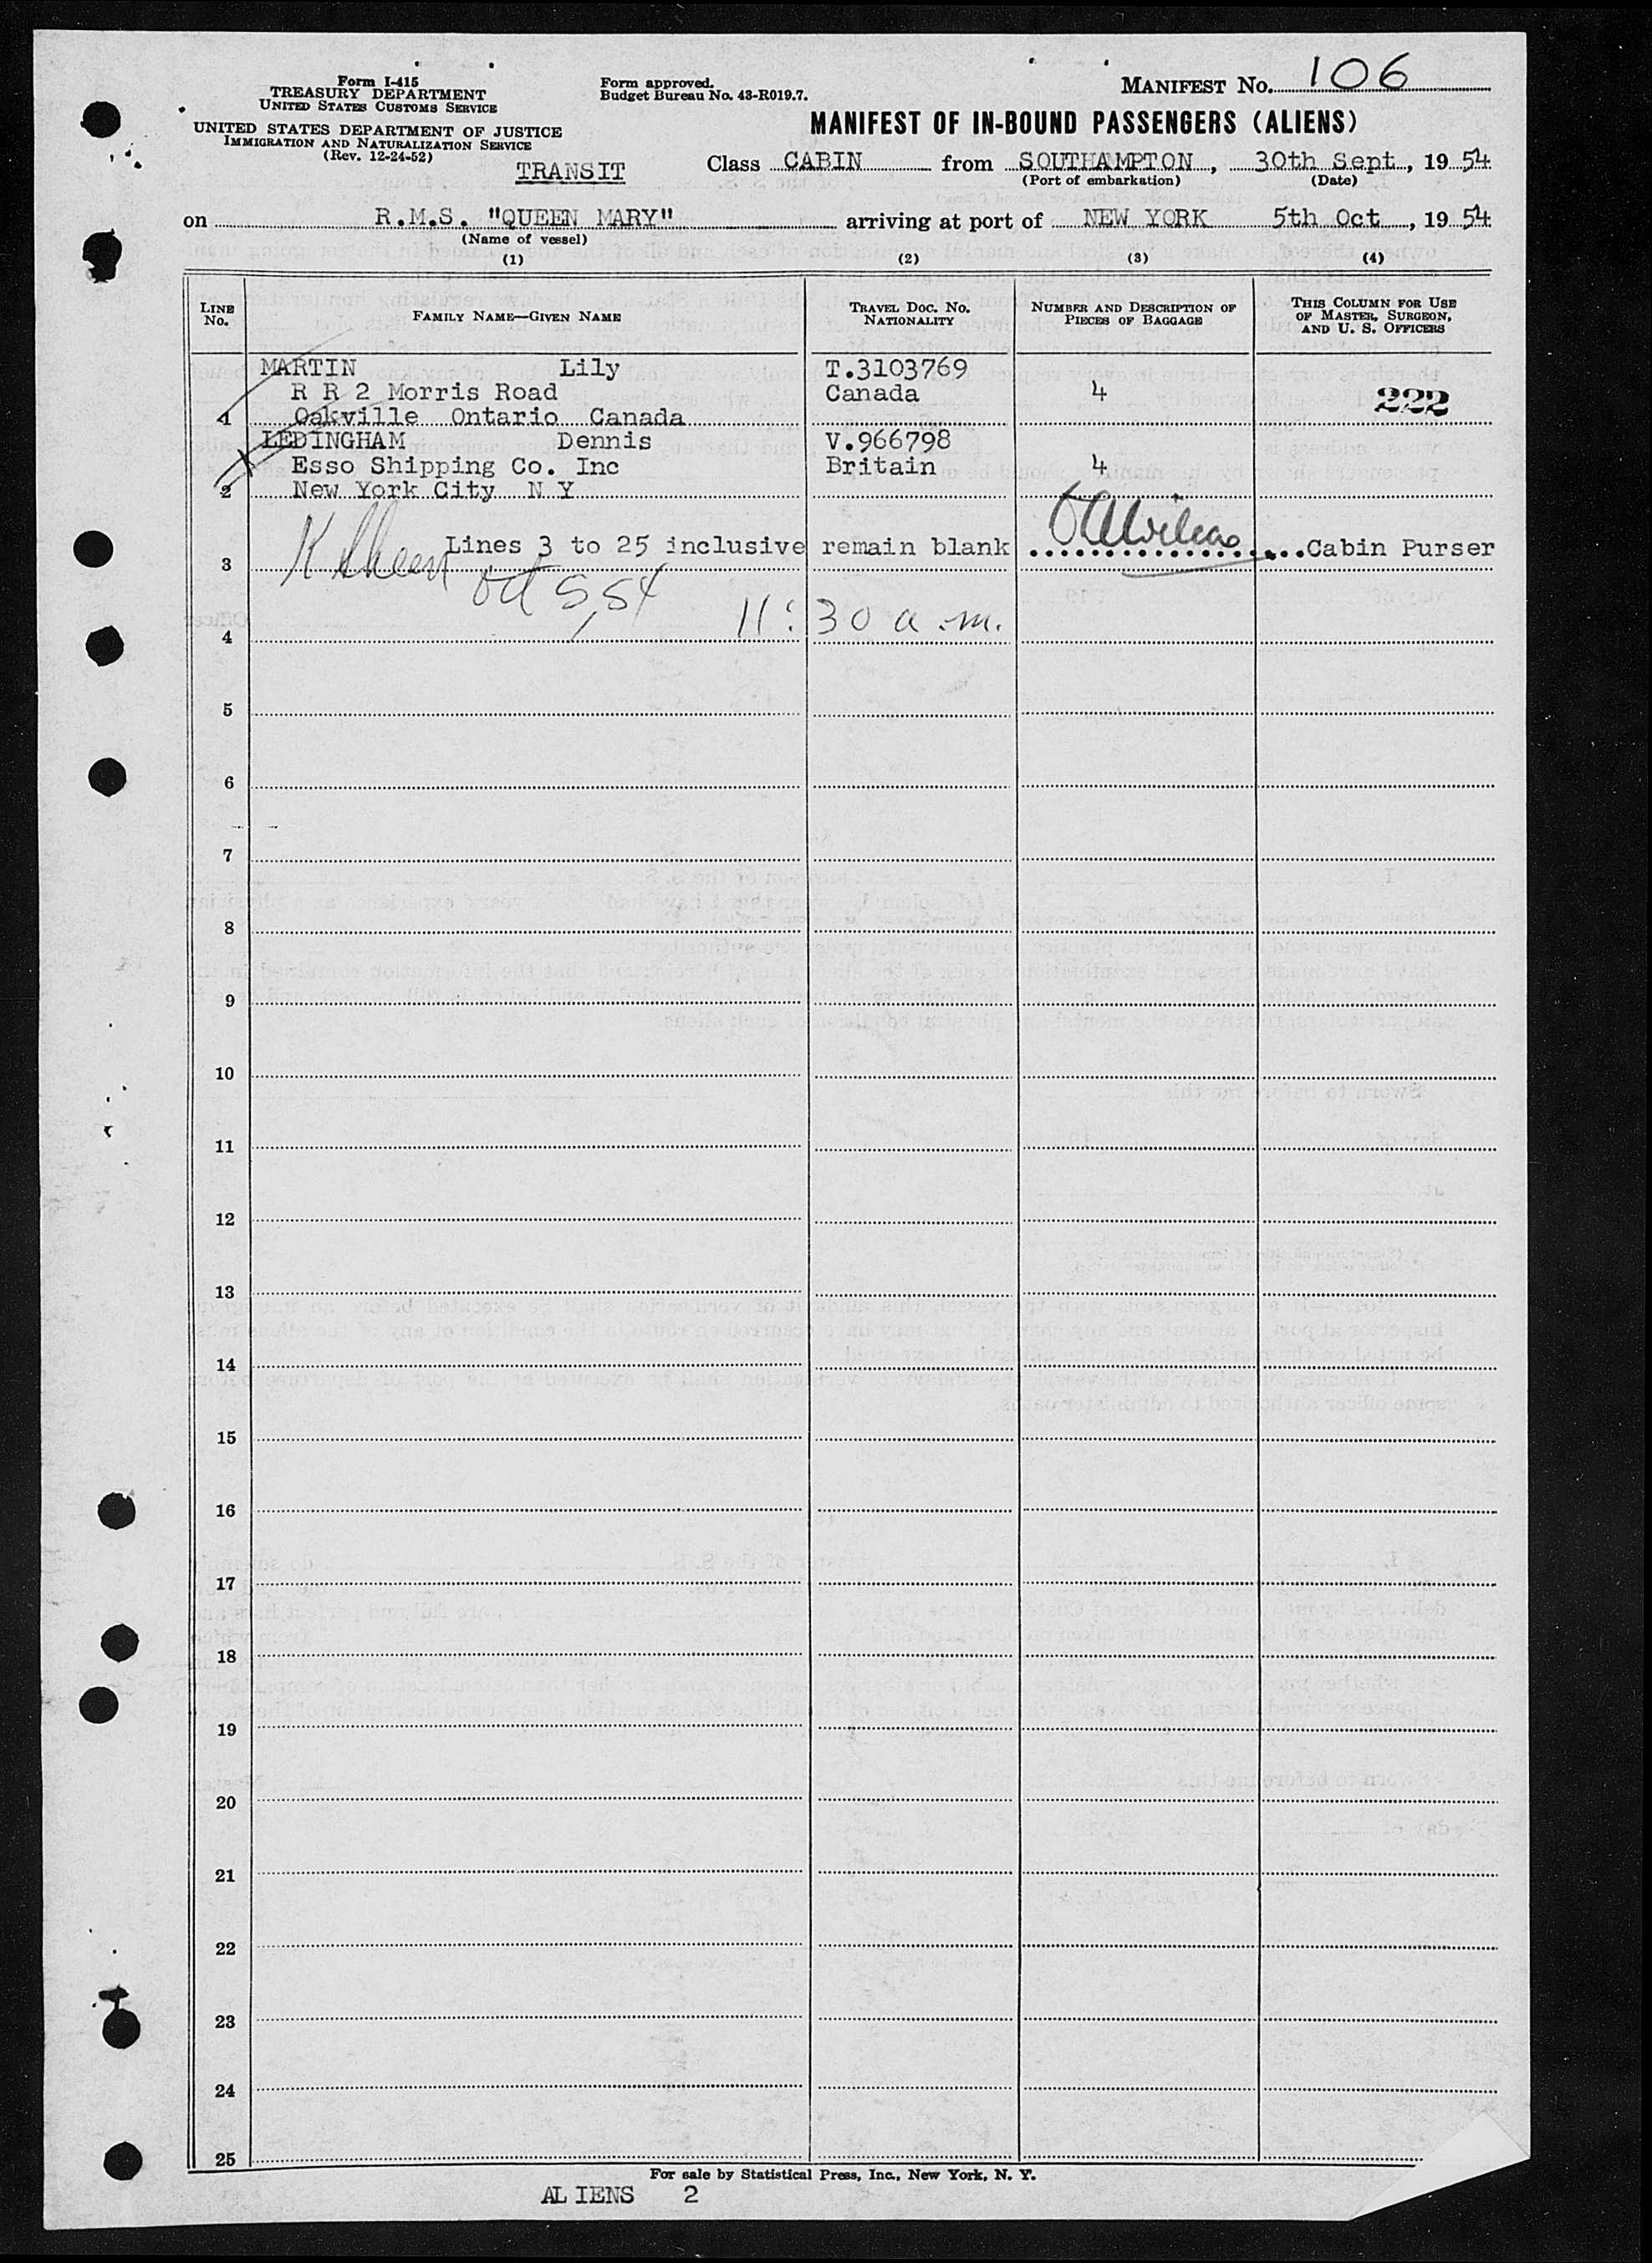 Form I-415
TREASURY DEPARTMENT
UNITED STATES CUSTOMS SERVICE
UNITED STATES DEPARTMENT OF JUSTICE
IMMIGRATION AND NATURALIZATION SERVICE
(Rev. 12-24-52)
Form approved.
Budget Bureau No. 43-R019.7.
MANIFEST No. 106
MANIFEST OF IN-BOUND PASSENGERS (ALIENS)
TRANSIT
Class CABIN from SOUTHAMPTON, 30th Sept, 1954
(Port of embarkation) (Date)
on R.M.S. "QUEEN MARY" arriving at port of NEW YORK 5th Oct, 1954
(Name of vessel)
(1) (2) (3) (4)
LINE No. FAMILY NAME—GIVEN NAME TRAVEL DOC. No. NATIONALITY NUMBER AND DESCRIPTION OF PIECES OF BAGGAGE THIS COLUMN FOR USE OF MASTER, SURGEON, AND U. S. OFFICERS
MARTIN Lily T.3103769
R R 2 Morris Road Canada 4 222
1 Oakville Ontario Canada
LEDINGHAM Dennis V.966798
Esso Shipping Co. Inc Britain 4
2 New York City N Y
Lines 3 to 25 inclusive remain blank ....Cabin Purser
3
Oct 5, 54 11:30 a.m.
4
5
6
7
8
9
10
11
12
13
14
15
16
17
18
19
20
21
22
23
24
25
For sale by Statistical Press, Inc., New York, N. Y.
ALIENS 2